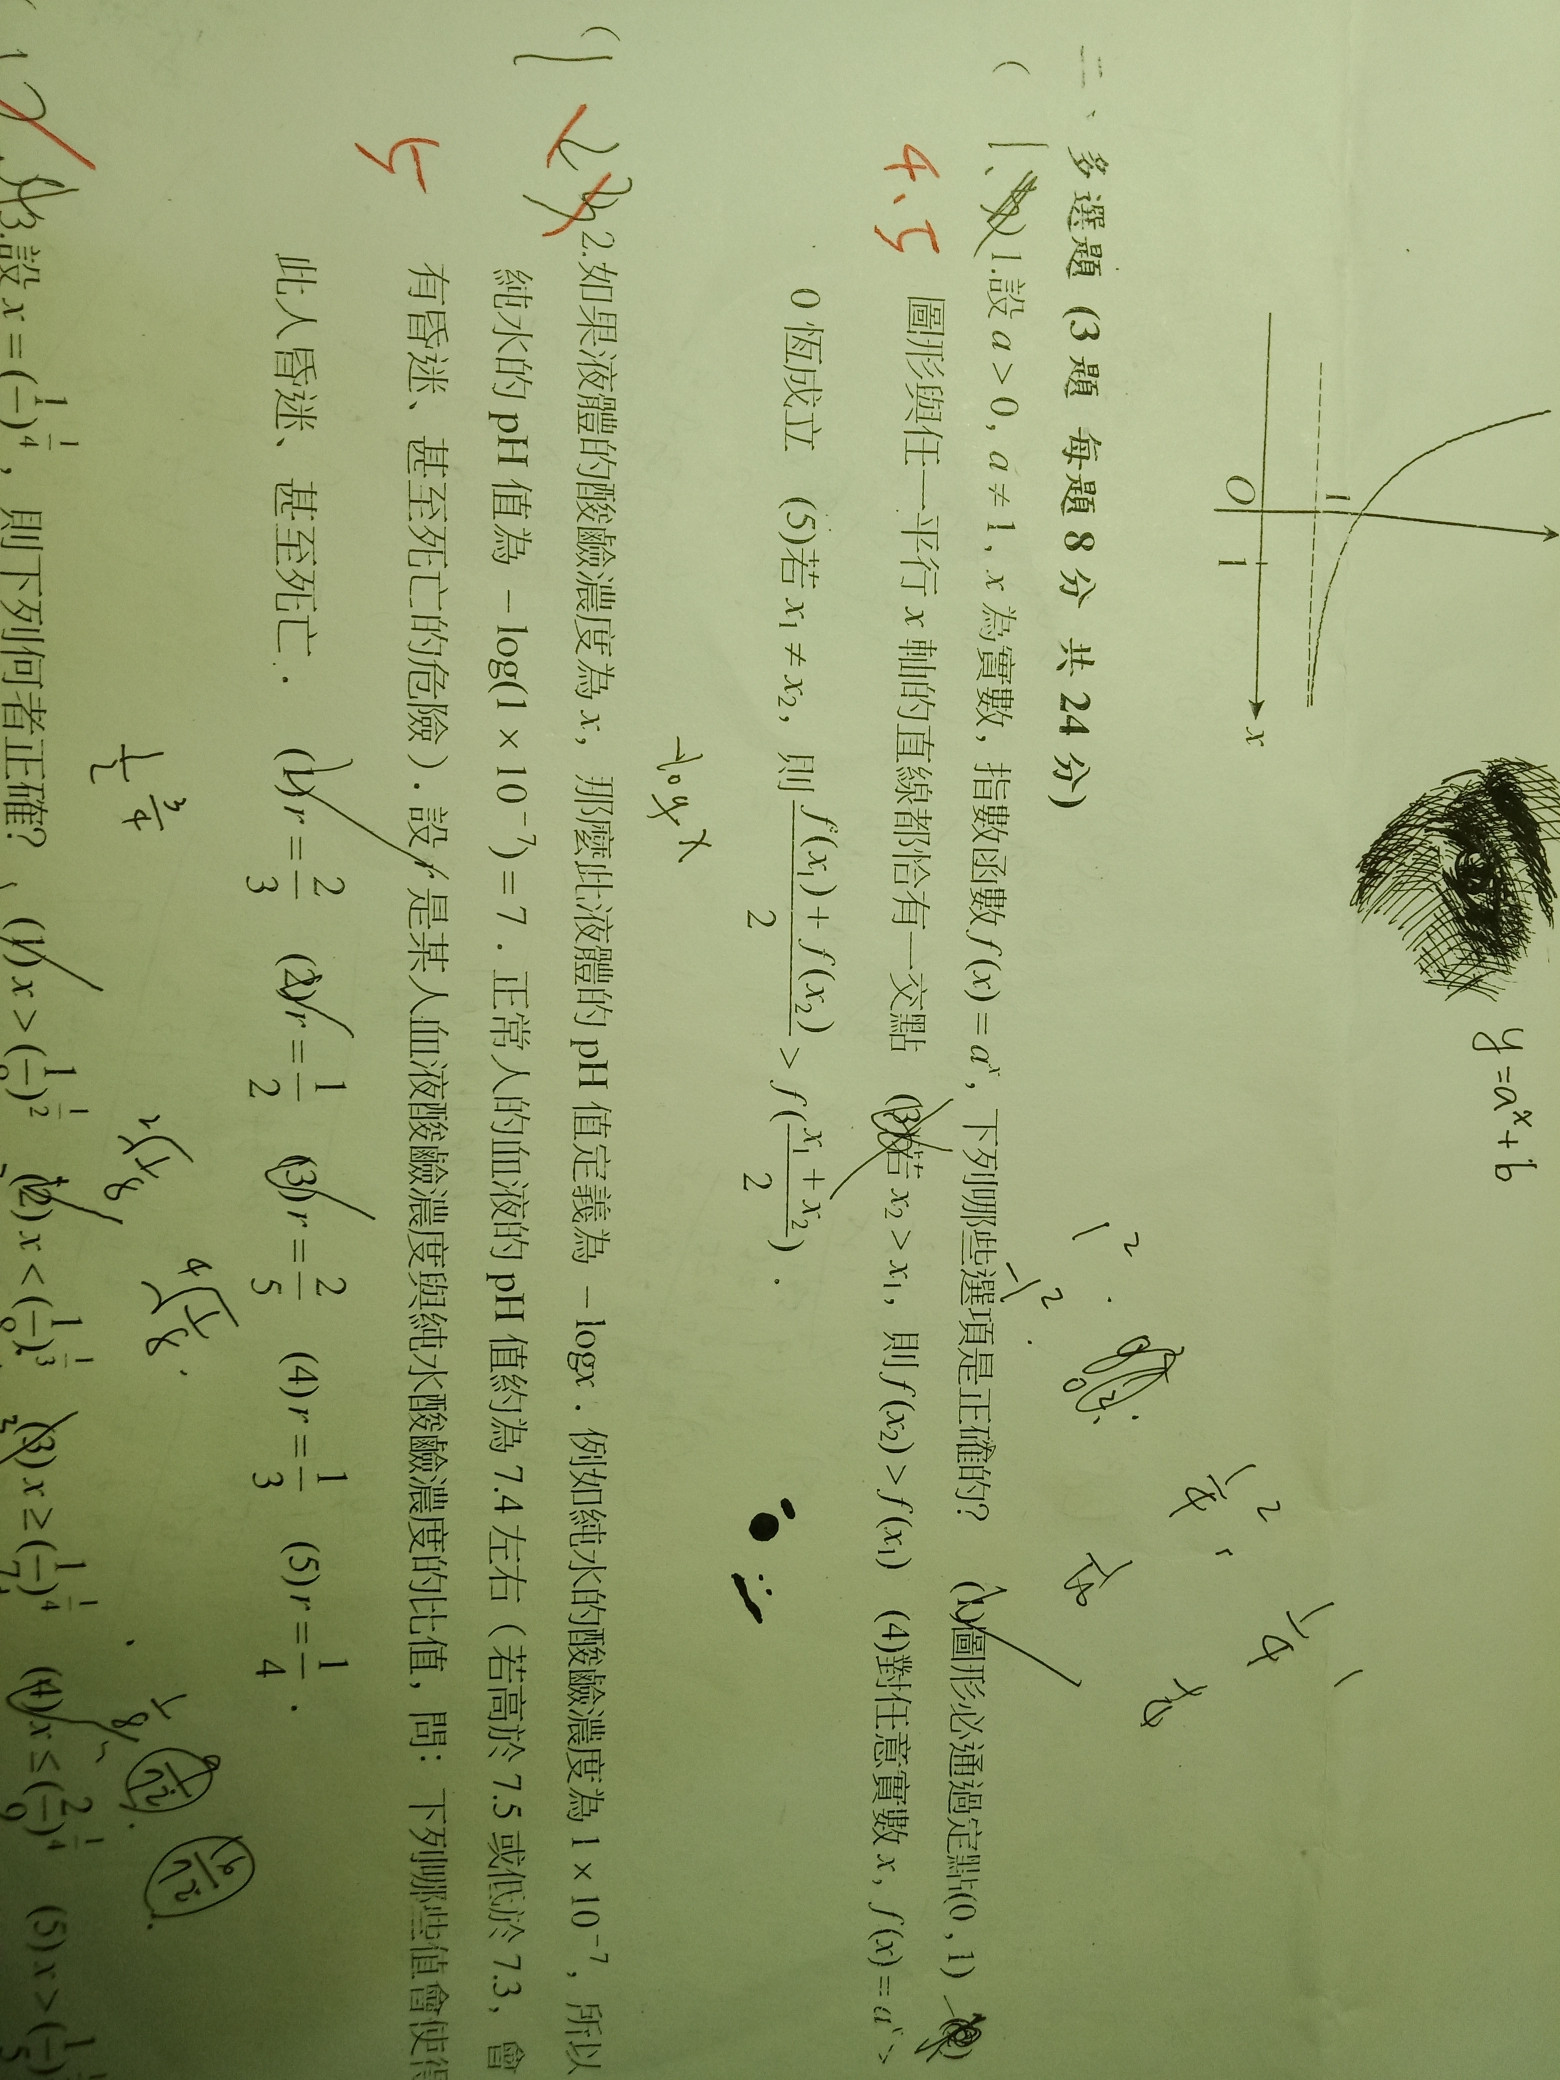 y=aˣ+b
1
O
1
x
二、多選題 (3 題 每題 8 分 共 24 分)
( 1、 ) 1.設 a > 0, a ≠ 1, x 為實數, 指數函數 f (x) = aˣ, 下列哪些選項是正確的? (1)圖形必通過定點(0 , 1) (2)
4、5
圖形與任一平行 x 軸的直線都恰有一交點 (3)若 x₂ > x₁, 則 f (x₂) > f (x₁) (4)對任意實數 x, f (x) = aˣ >
0 恆成立 (5)若 x₁ ≠ x₂, 則 (f(x₁) + f(x₂))/2 > f((x₁ + x₂)/2) .
-log x
( 1 2 3 ) 2.如果液體的酸鹼濃度為 x, 那麼此液體的 pH 值定義為 − logx . 例如純水的酸鹼濃度為 1 × 10⁻⁷, 所以
純水的 pH 值為 − log(1 × 10⁻⁷) = 7 . 正常人的血液的 pH 值約為 7.4 左右 ( 若高於 7.5 或低於 7.3, 會
5
有昏迷、甚至死亡的危險 ) . 設 r 是某人血液酸鹼濃度與純水酸鹼濃度的比值, 問: 下列哪些值會使得
此人昏迷、甚至死亡 . (1) r = 2/3 (2) r = 1/2 (3) r = 2/5 (4) r = 1/3 (5) r = 1/4 .
3.設 x = (1/)^(1/4), 則下列何者正確? (1) x > (1/)^(1/2) (2) x < (1/)^(1/3) (3) x ≥ (1/)^(1/4) (4) x ≤ (2/9)^(1/4) (5) x > (1/5)